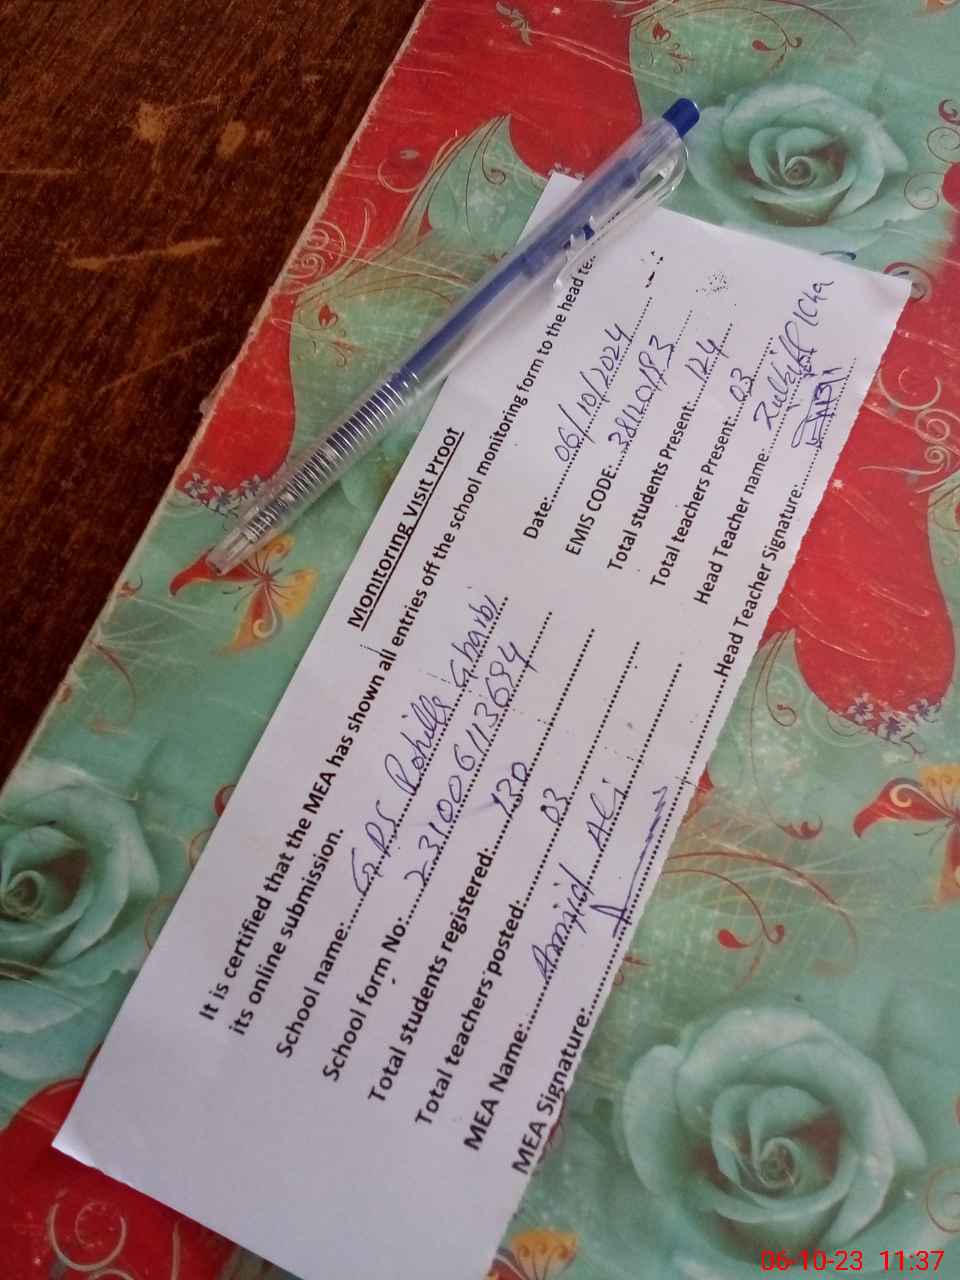 Monitoring Visit Proof
It is certified that the MEA has shown all entries off the school monitoring form to the head te
its online submission.
School name: G.P.S Rohilla Gharbi Date: 06/10/2024
School form No: 231006113694 EMIS CODE: 38120183
Total students registered: 130 Total students Present: 124
Total teachers posted: 03 Total teachers Present: 03
MEA Name: Amjid Ali Head Teacher name:
MEA Signature: Head Teacher Signature:
06-10-23 11:37